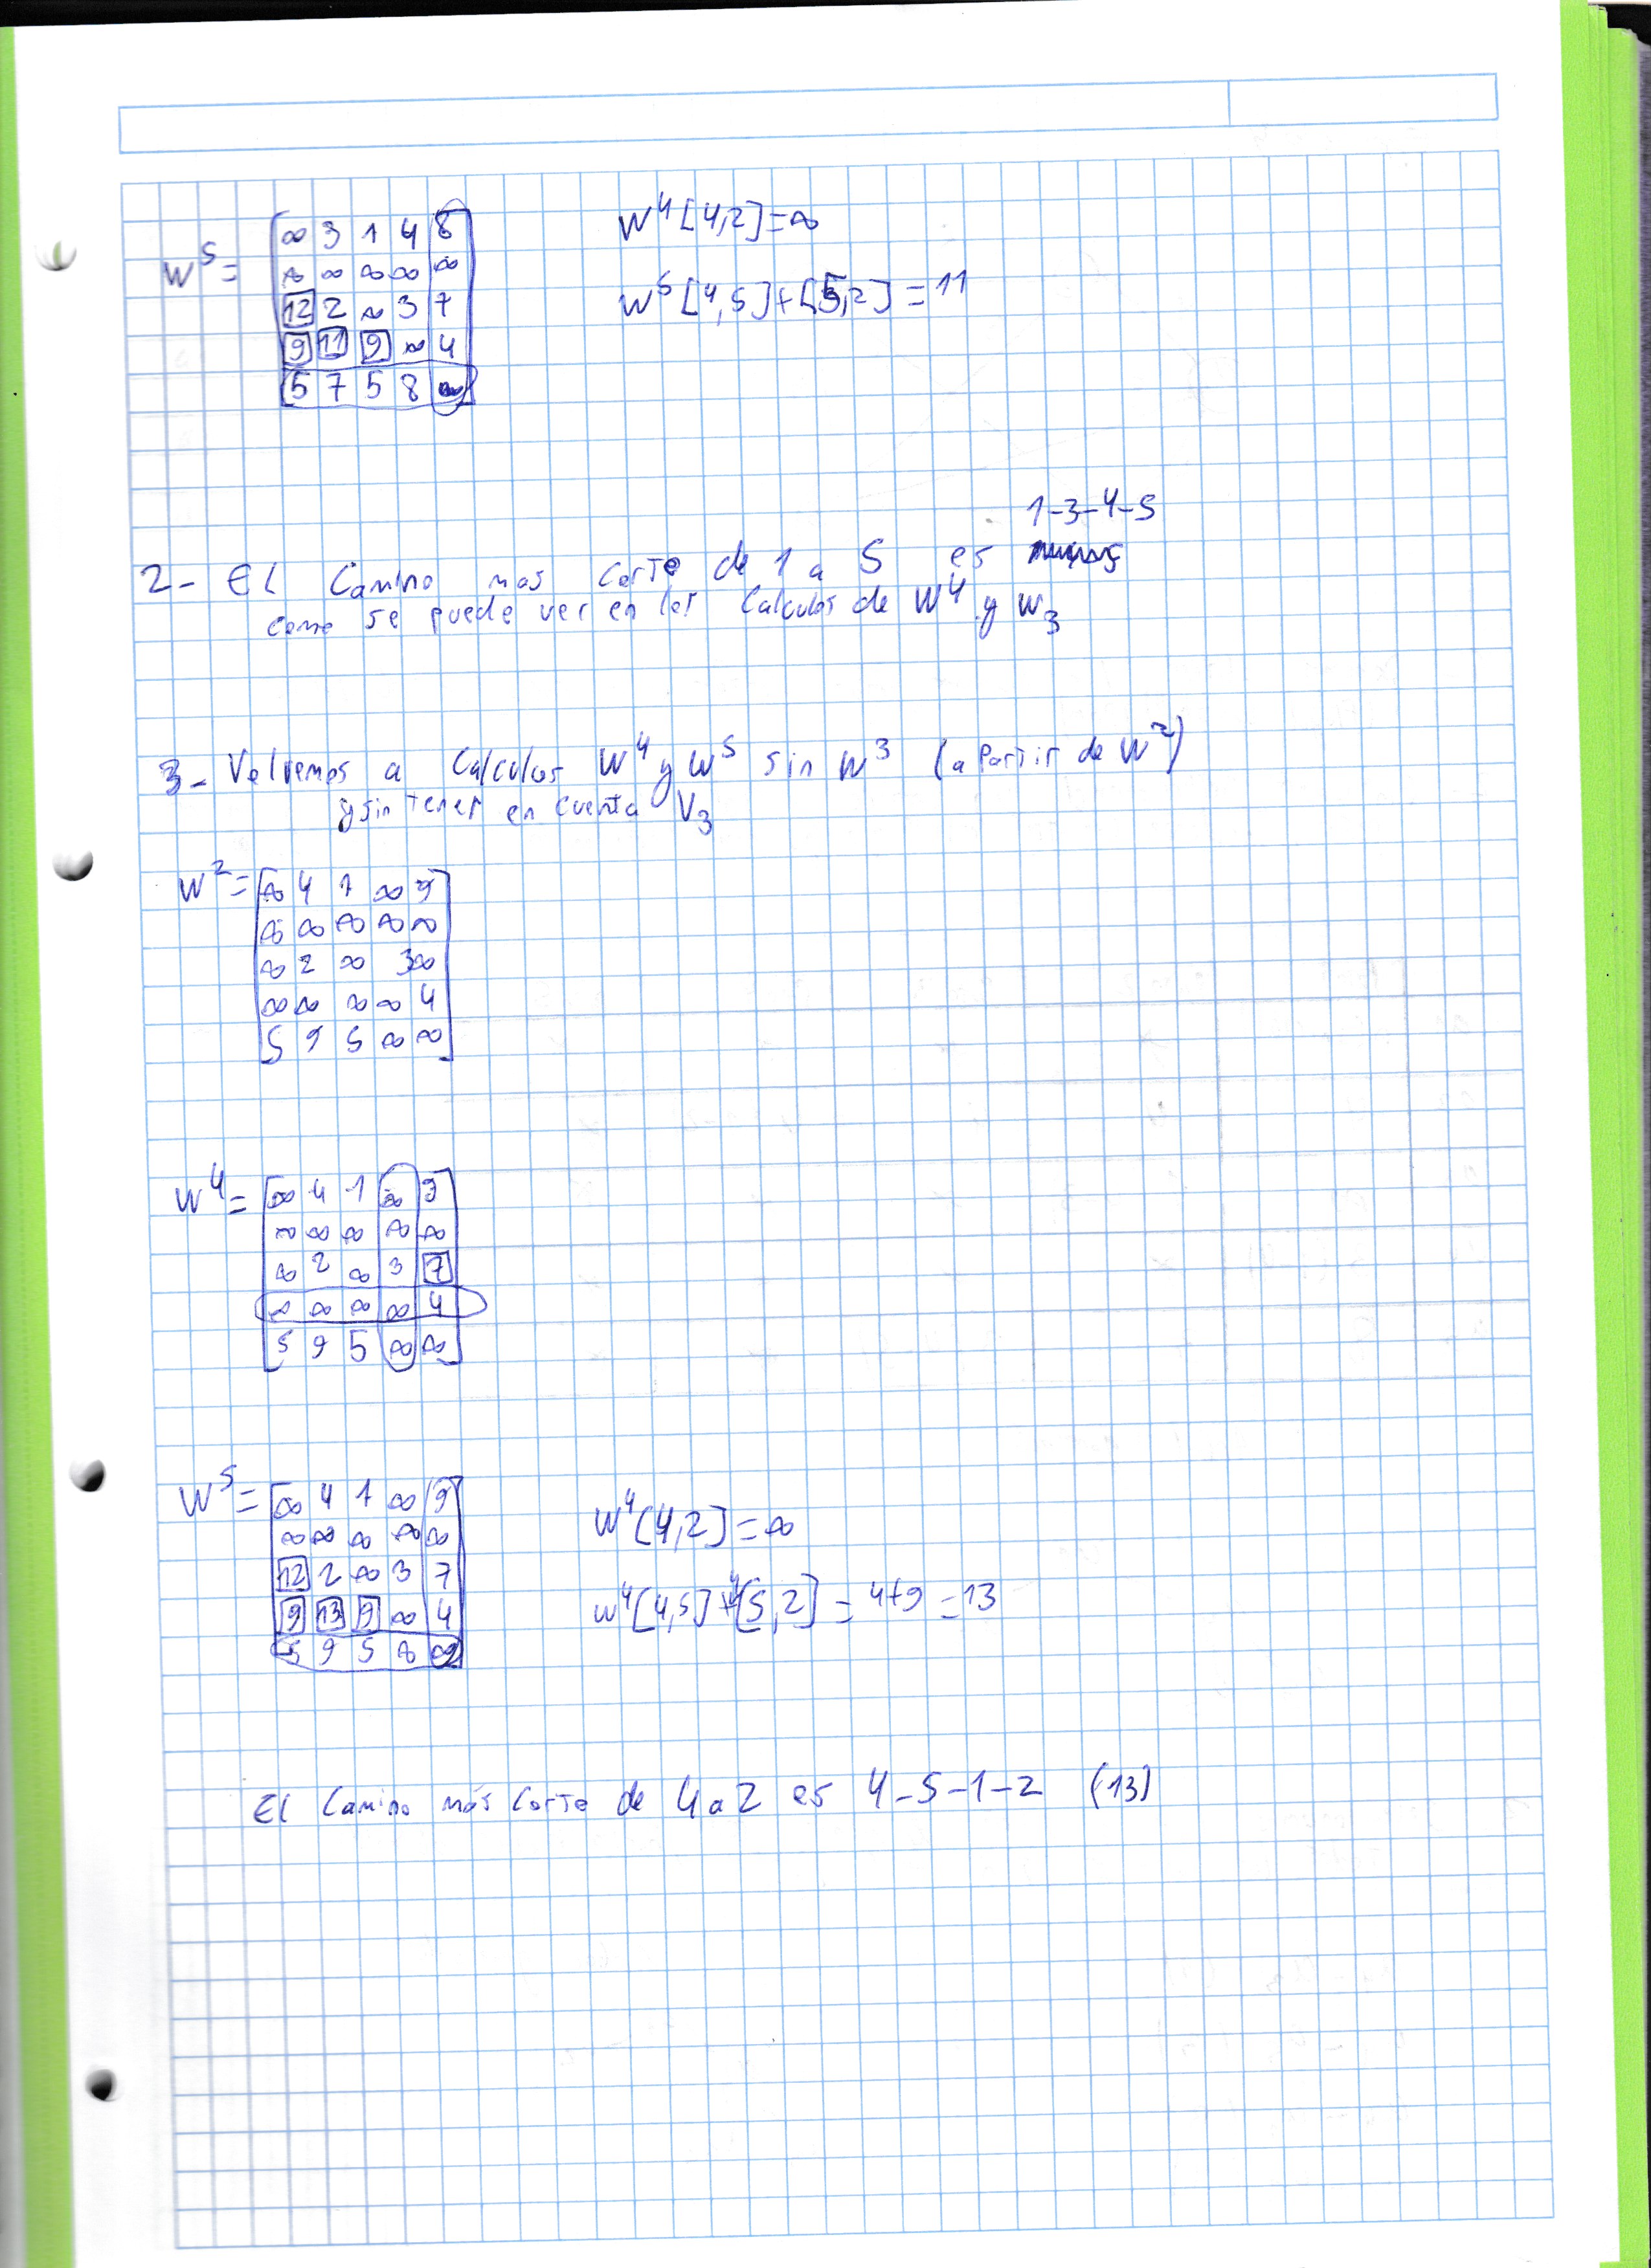 W⁵ =
∞ 3 1 4 8
∞ ∞ ∞ ∞ ∞
12 2 ∞ 3 7
9 11 9 ∞ 4
5 7 5 8 ∞
W⁴[4,2]=∞
W⁵[4,5]+[5,2]=11
1-3-4-5
2- El Camino mas corto de 1 a 5 es
como se puede ver en los Calculos de W⁴ y W₃
3- Volvemos a Calculos W⁴ y W⁵ sin W³ (a partir de W²)
y sin tener en cuenta V₃
W² =
∞ 4 1 ∞ 9
∞ ∞ ∞ ∞ ∞
∞ 2 ∞ 3 ∞
∞ ∞ ∞ ∞ 4
5 9 5 ∞ ∞
W⁴ =
∞ 4 1 ∞ 9
∞ ∞ ∞ ∞ ∞
∞ 2 ∞ 3 7
∞ ∞ ∞ ∞ 4
5 9 5 ∞ ∞
W⁵ =
∞ 4 1 ∞ 9
∞ ∞ ∞ ∞ ∞
12 2 ∞ 3 7
9 13 9 ∞ 4
5 9 5 ∞ ∞
W⁴[4,2]=∞
W⁴[4,5]+⁴[5,2]=4+9=13
El Camino más Corto de 4 a 2 es 4-5-1-2 (13)